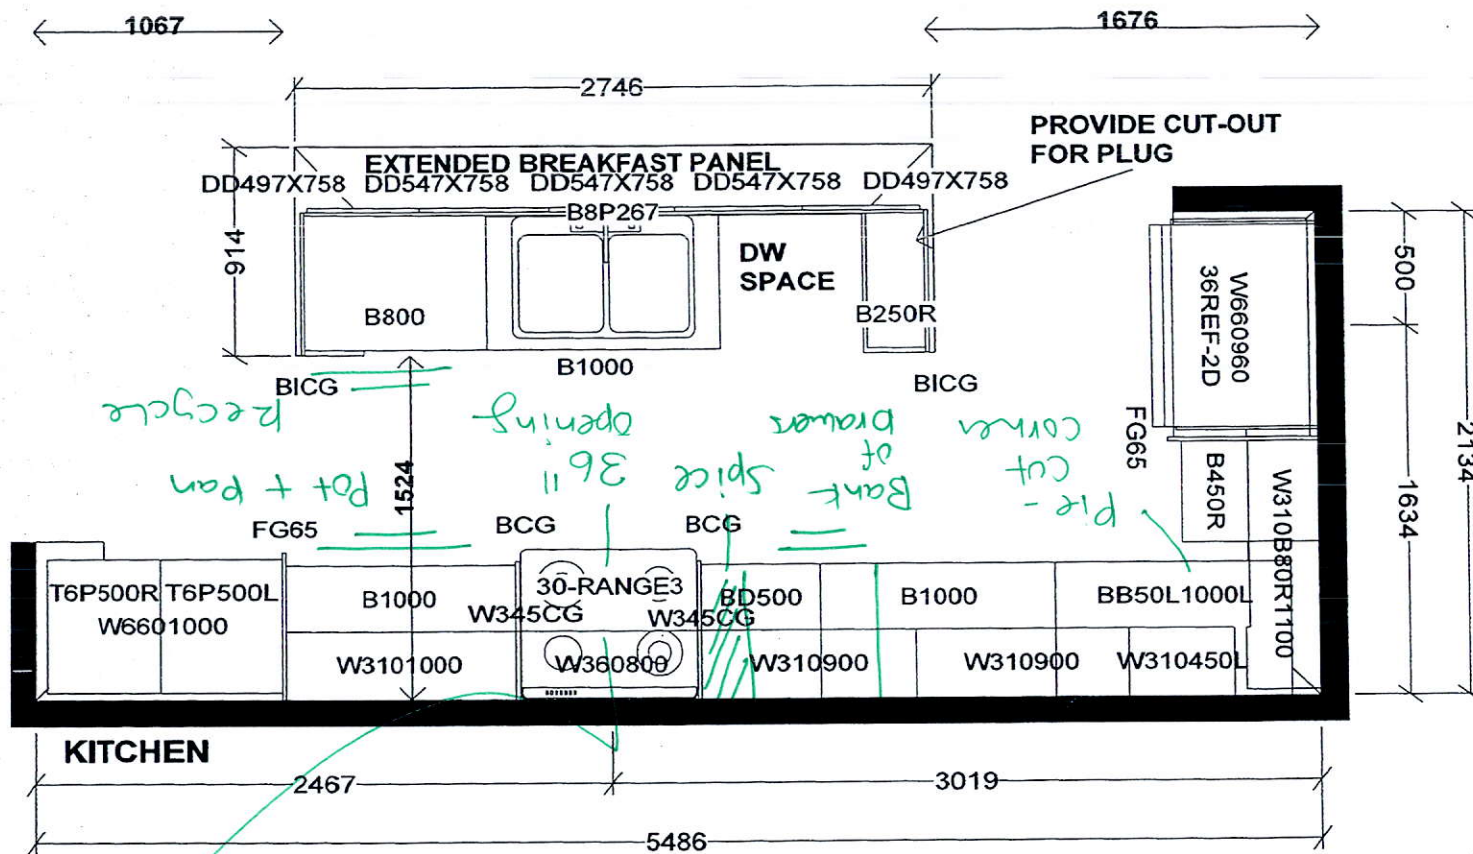 1067
1676
2746
PROVIDE CUT-OUT
FOR PLUG
EXTENDED BREAKFAST PANEL
DD497X758 DD547X758 DD547X758 DD547X758 DD497X758
B8P267
914
DW
SPACE
B800
B250R
B1000
BICG
BICG
W660960
36REF-2D
500
2134
1634
FG65
B450R
W310B80R1100
Recycle
Pot + Pan
36"
opening
Spice
Bank
of
Drawers
Pie-
cut
corner
1524
FG65
BCG
BCG
T6P500R T6P500L
W6601000
B1000
W345CG
30-RANGE3
W345CG
BD500
B1000
BB50L1000L
W3101000
W360800
W310900
W310900
W310450L
KITCHEN
2467
3019
5486